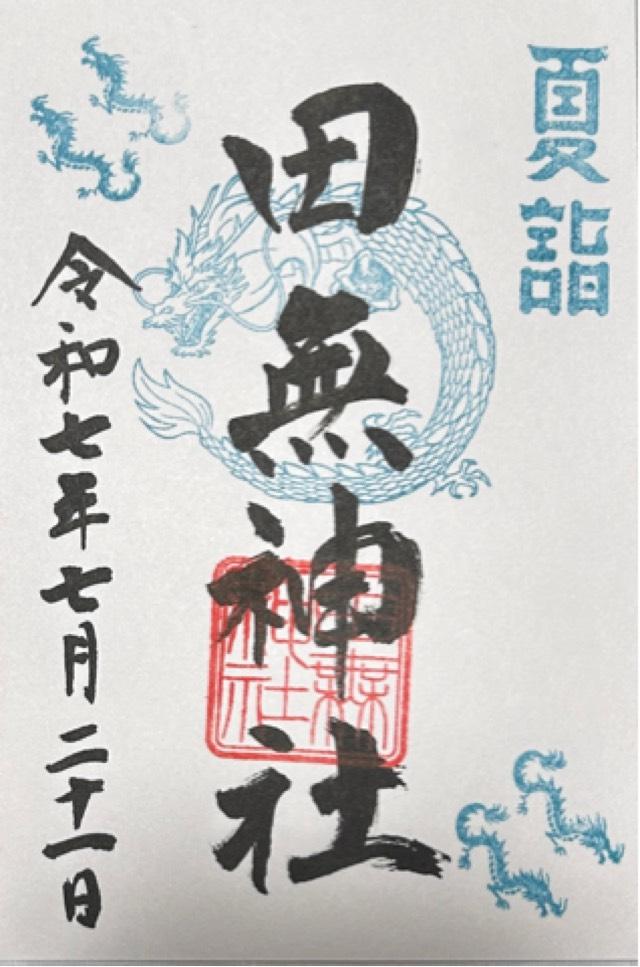 夏詣
田無神社
田無神社
令和七年七月二十一日